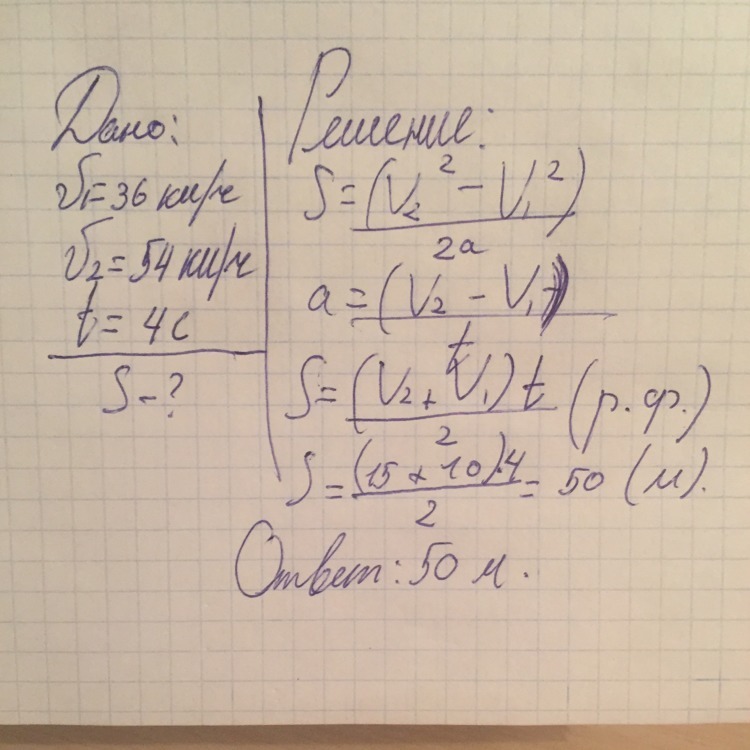 Дано:
v₁=36 км/ч
v₂=54 км/ч
t=4с
S-?
Решение:
S=(V₂²-V₁²)/2a
a=(V₂-V₁)/t
S=(V₂+V₁)t/2 (р.ф.)
S=(15+10)·4/2=50 (м).
Ответ: 50 м.